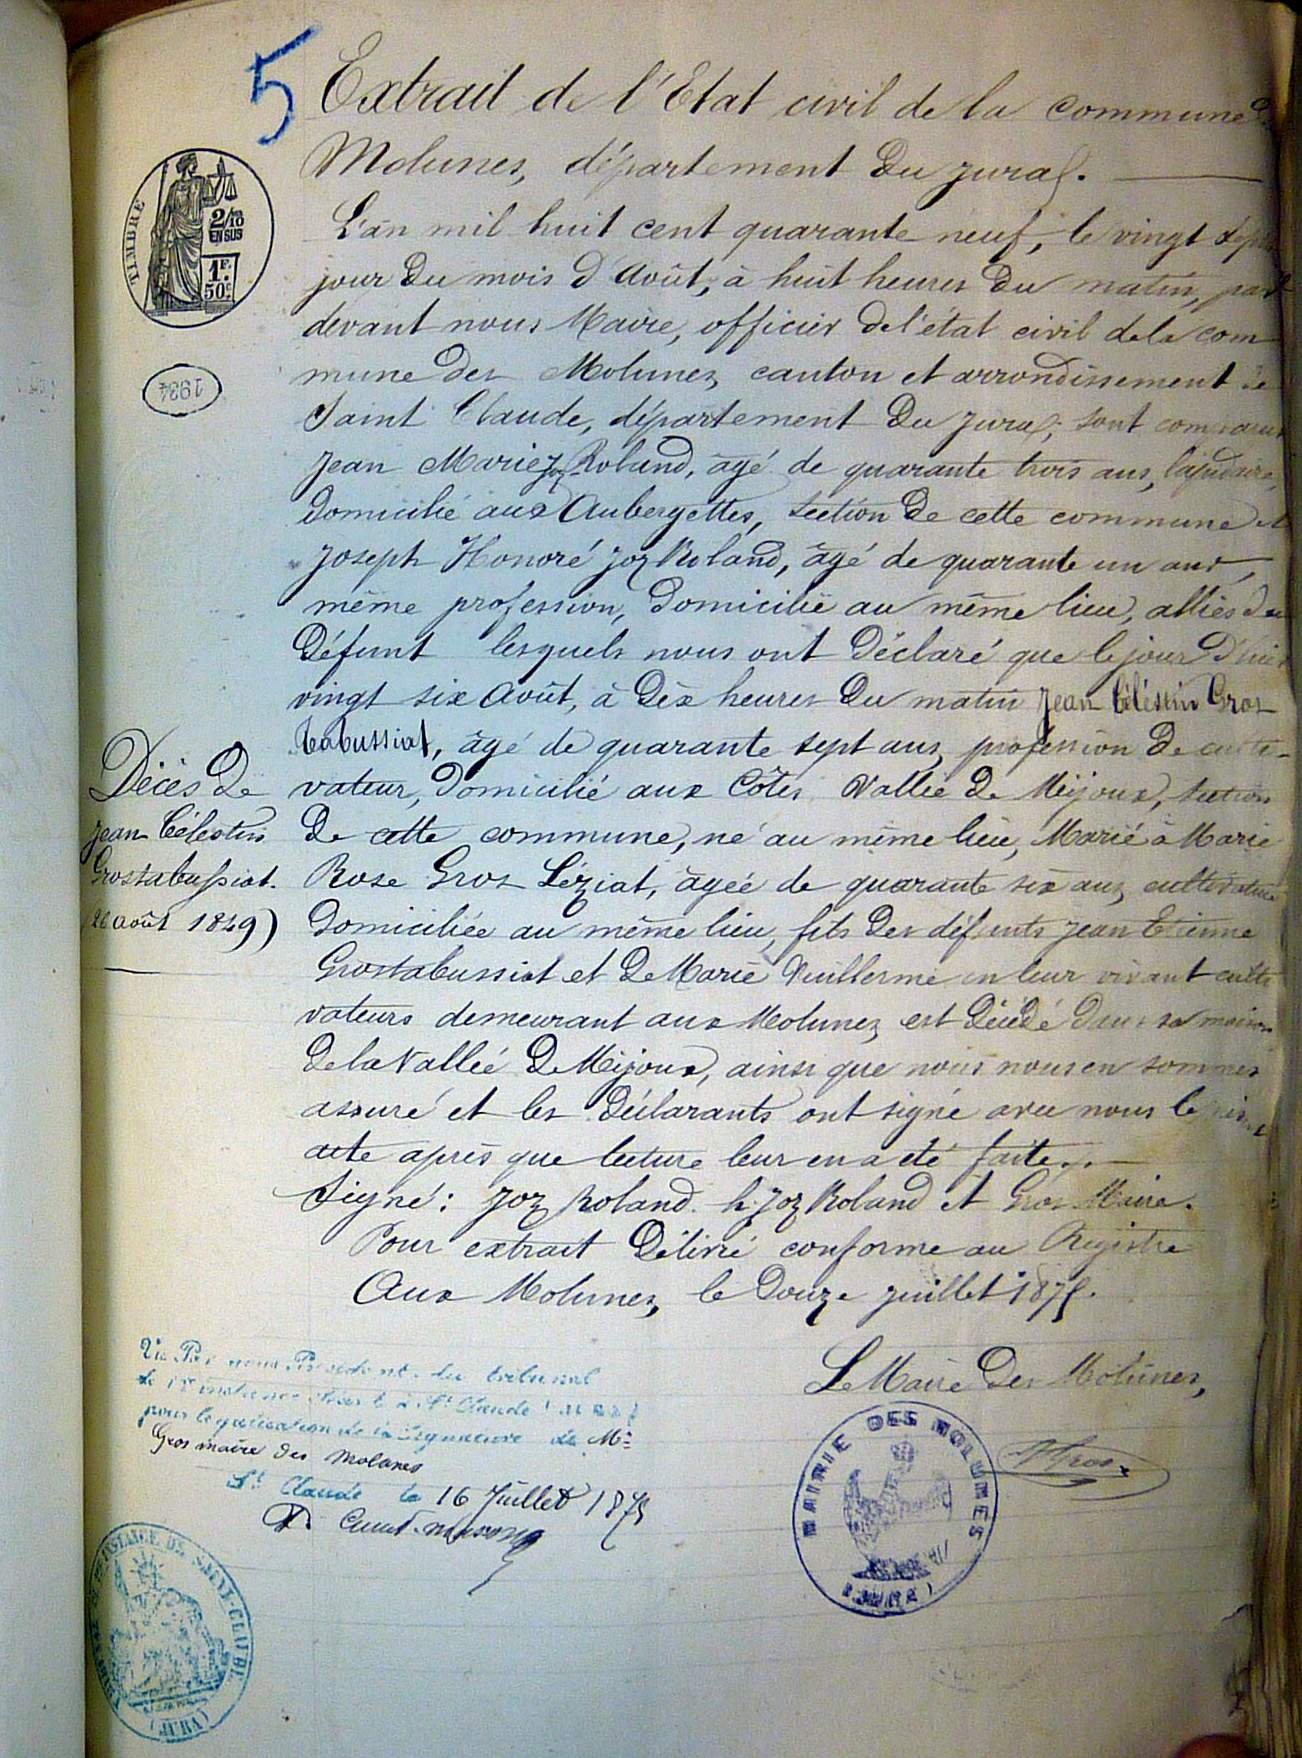 5
Extrait de l'Etat civil de la commune
Molunes, département du Jura.
TIMBRE
2/10
EN SUS
1F.
50c
L'an mil huit cent quarante neuf, le vingt sept
jour du mois d'Août, à huit heures du matin, par
devant nous Maire, officier de l'état civil de la com
1934
mune des Molunes, canton et arrondissement de
Saint Claude, département du Jura, sont comparus
Jean Marie Joz Roland, âgé de quarante trois ans, lapidaire,
domicilié aux Aubergettes, section de cette commune et
Joseph Honoré Joz Roland, âgé de quarante un ans,
même profession, domicilié au même lieu, alliés du
défunt lesquels nous ont déclaré que le jour d'hier
vingt six Août, à dix heures du matin Jean Célestin Gros
tabussiat, âgé de quarante sept ans, profession de culti-
vateur, domicilié aux Côtes Vallée de Mijoux, section
de cette commune, né au même lieu, Marié à Marie
Rose Gros Léziat, âgée de quarante six ans, cultivatrice
domiciliée au même lieu, fils des défunts Jean Etienne
Grostabussiat et de Marie Vuillerme en leur vivant culti
vateurs demeurant aux Molunes, est décédé dans sa maison
de la Vallée de Mijoux, ainsi que nous nous en sommes
assuré et les déclarants ont signé avec nous le
acte après que lecture leur en a été faite.
Décès de
Jean Célestin
Grostabussiat.
(26 août 1849)
Signé: Joz Roland. h. Joz Roland et Gros Maire.
Pour extrait délivré conforme au Registre
Aux Molunes, le douze juillet 1875.
Le Maire des Molunes,
Gros
MAIRIE DES MOLUNES
(JURA)
Vu Par nous Président du tribunal
de 1re instance séant à St Claude (Jura)
pour légalisation de la Signature de Mr
Gros maire des Molunes
St Claude le 16 Juillet 1875
INSTANCE DE SAINT-CLAUDE
(JURA)